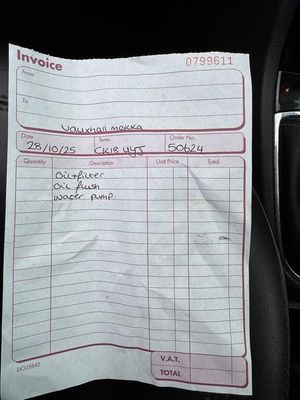 Invoice
0799611
From
To
Vauxhall mokka
Date
Terms
Order No.
28/10/25
CK18 UYJ
50624
Quantity
Description
Unit Price
Total
Oil+filter
Oil flush
Water pump.
V.A.T.
TOTAL
DCU5842